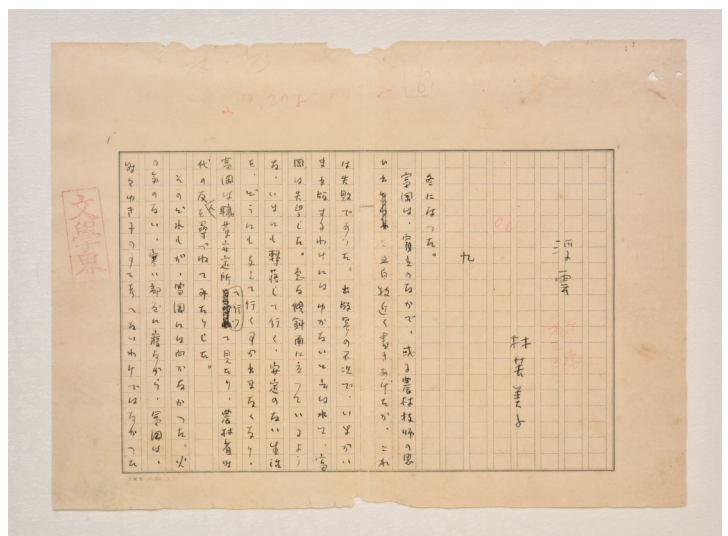 浮雲
林芙美子
九
冬になった。
富岡は、貧乏のなかで、或る農林技師の思
ひ出を五百枚近く書きあげたが、これ
は失敗であった。出版界の不況で、いまがい
ま出版するわけにはゆかないと云はれて、富
岡は失望した。急な傾斜面に立ってゐるよう
な、いまにも轉落して行く、安定のない生活
を、どうにも支えて行く事が出来なくなり、
富岡は職業安定所へ行って見たり、農林省時
代の友を尋づねてみたりした。
そのどれもが、富岡には向かなかった。火
の気のない、寒い部屋に寝ながら、富岡は、
ゆき子の
文學東